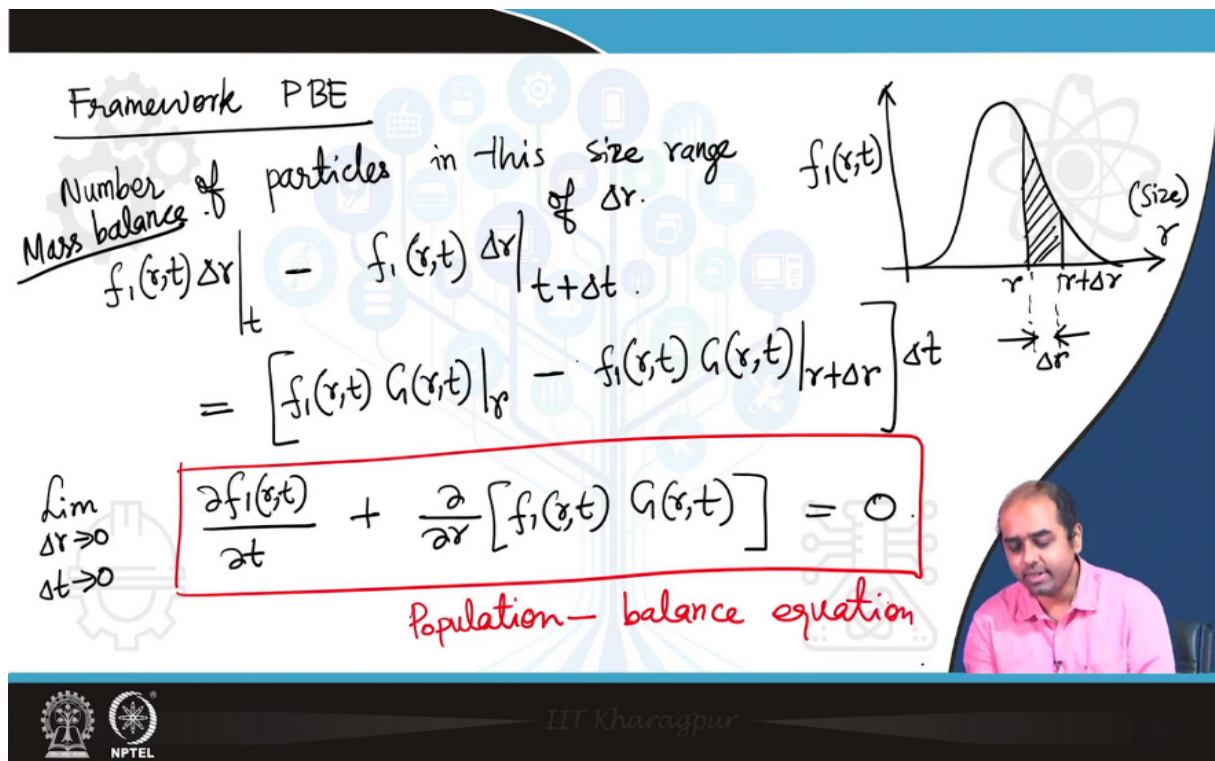 Framework PBE
Number of particles in this size range
of Δr.
Mass balance.
f₁(r,t) Δr|t − f₁(r,t) Δr|t+Δt.
= [f₁(r,t) G(r,t)|r − f₁(r,t) G(r,t)|r+Δr] Δt
Lim
Δr→0
Δt→0
∂f₁(r,t)/∂t + ∂/∂r [f₁(r,t) G(r,t)] = 0.
Population – balance equation
f₁(r,t)
(size)
r
r r+Δr
Δr
IIT Kharagpur
NPTEL